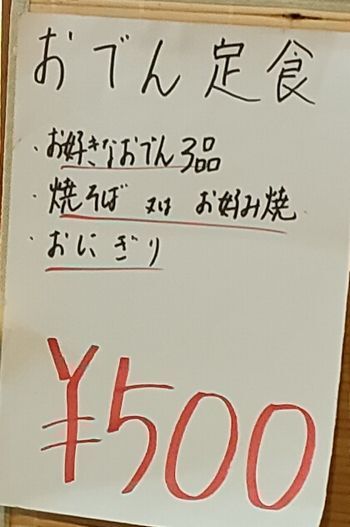 おでん定食
・お好きなおでん3品
・焼そば 又は お好み焼
・おにぎり
¥500